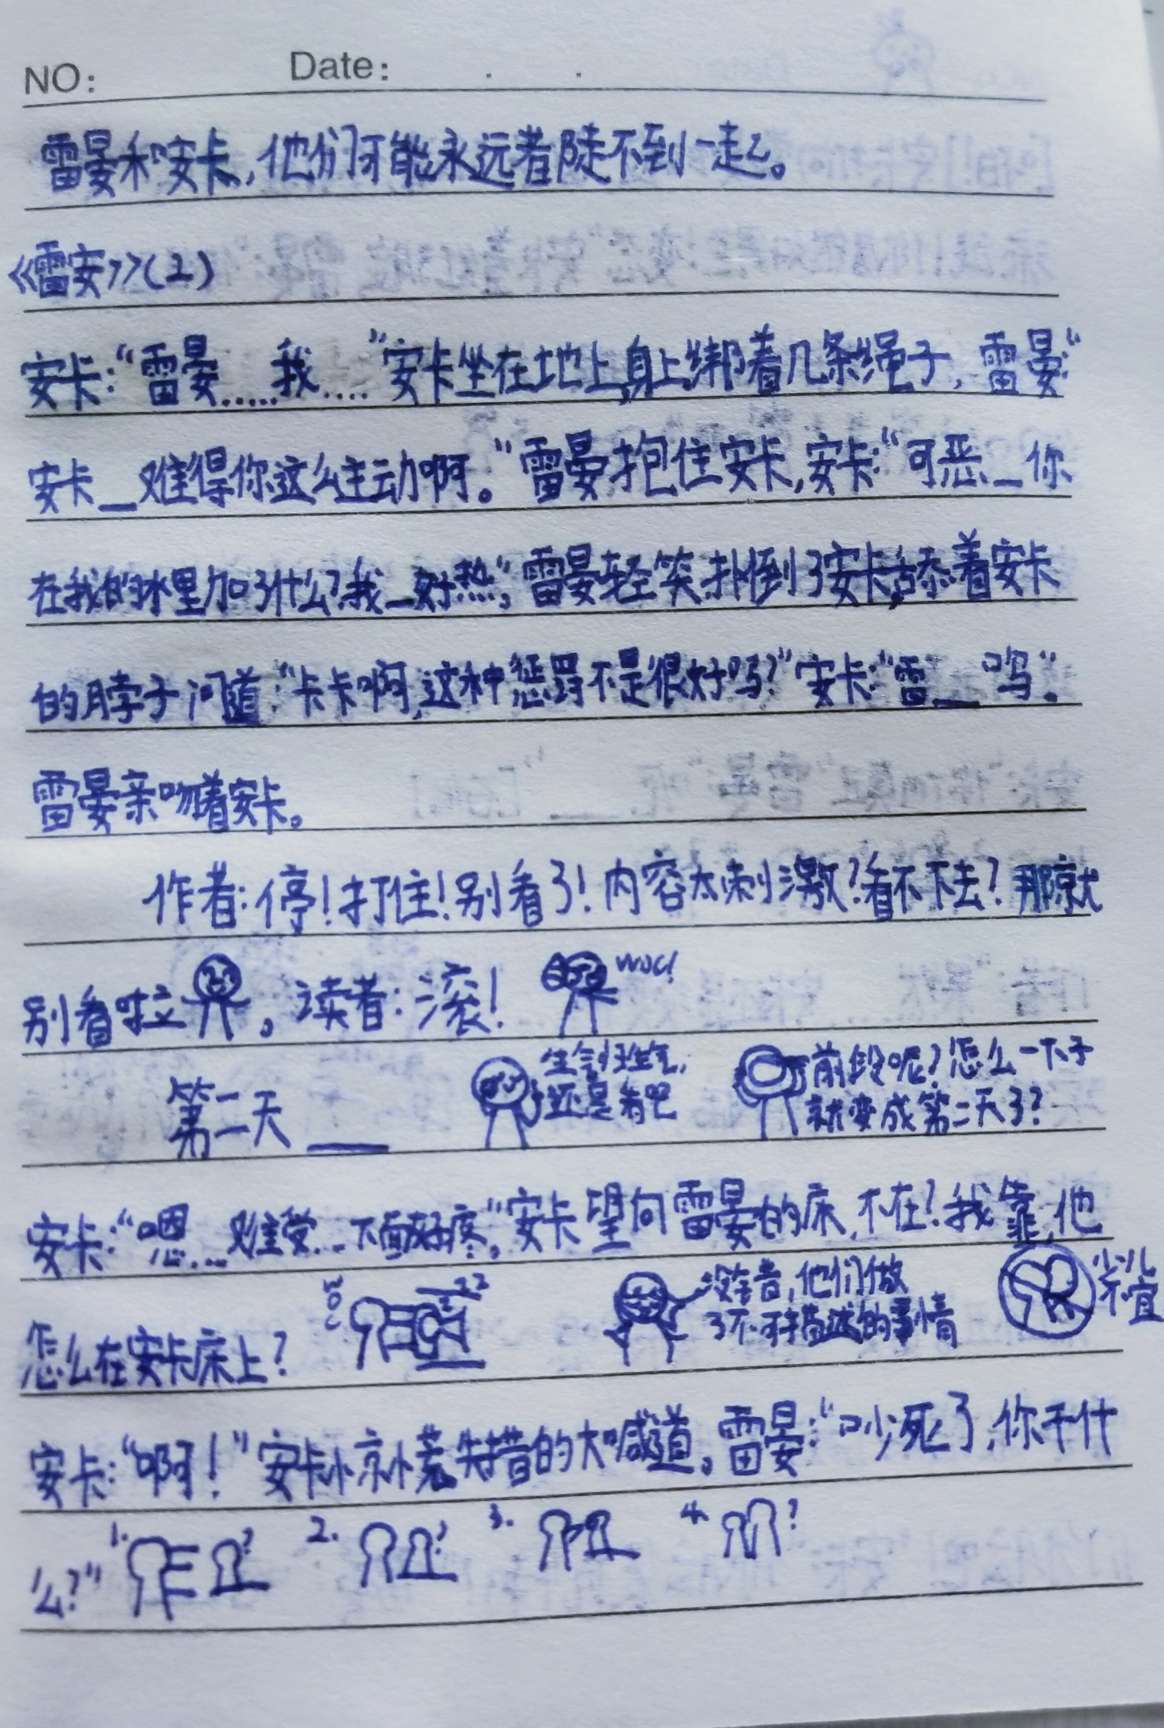 NO:	Date:	.	.
雷晏和安卡,他们可能永远都走不到一起。
《雷安》(2)
安卡:“雷晏.....我....”安卡坐在地上,身上绑着几条绳子,雷晏:“
安卡__难得你这么主动啊。”雷晏抱住安卡,安卡:“可恶__你
在我的水里加了什么?我__好热”,雷晏轻笑,扑倒了安卡,舔着安卡
的脖子问道:“卡卡啊,这种惩罚不是很好吗?”安卡:“雷__呜”。
雷晏亲吻着安卡。
作者:停!打住!别看了!内容太刺激?看不下去?那就
别看啦。读者:滚! woc!
第二天__ 生气归生气,还是看吧 前段呢?怎么一下子就变成第二天了?
安卡:“嗯....难受...下面好疼”,安卡望向雷晏的床,不在!我靠,他
怎么在安卡床上? zz 没错,他们做了不可描述的事情 少儿不宜
安卡:“啊!”安卡惊慌失措的大喊道。雷晏:“吵死了,你干什
么?” 1. ? 2. ? 3. 4. ?